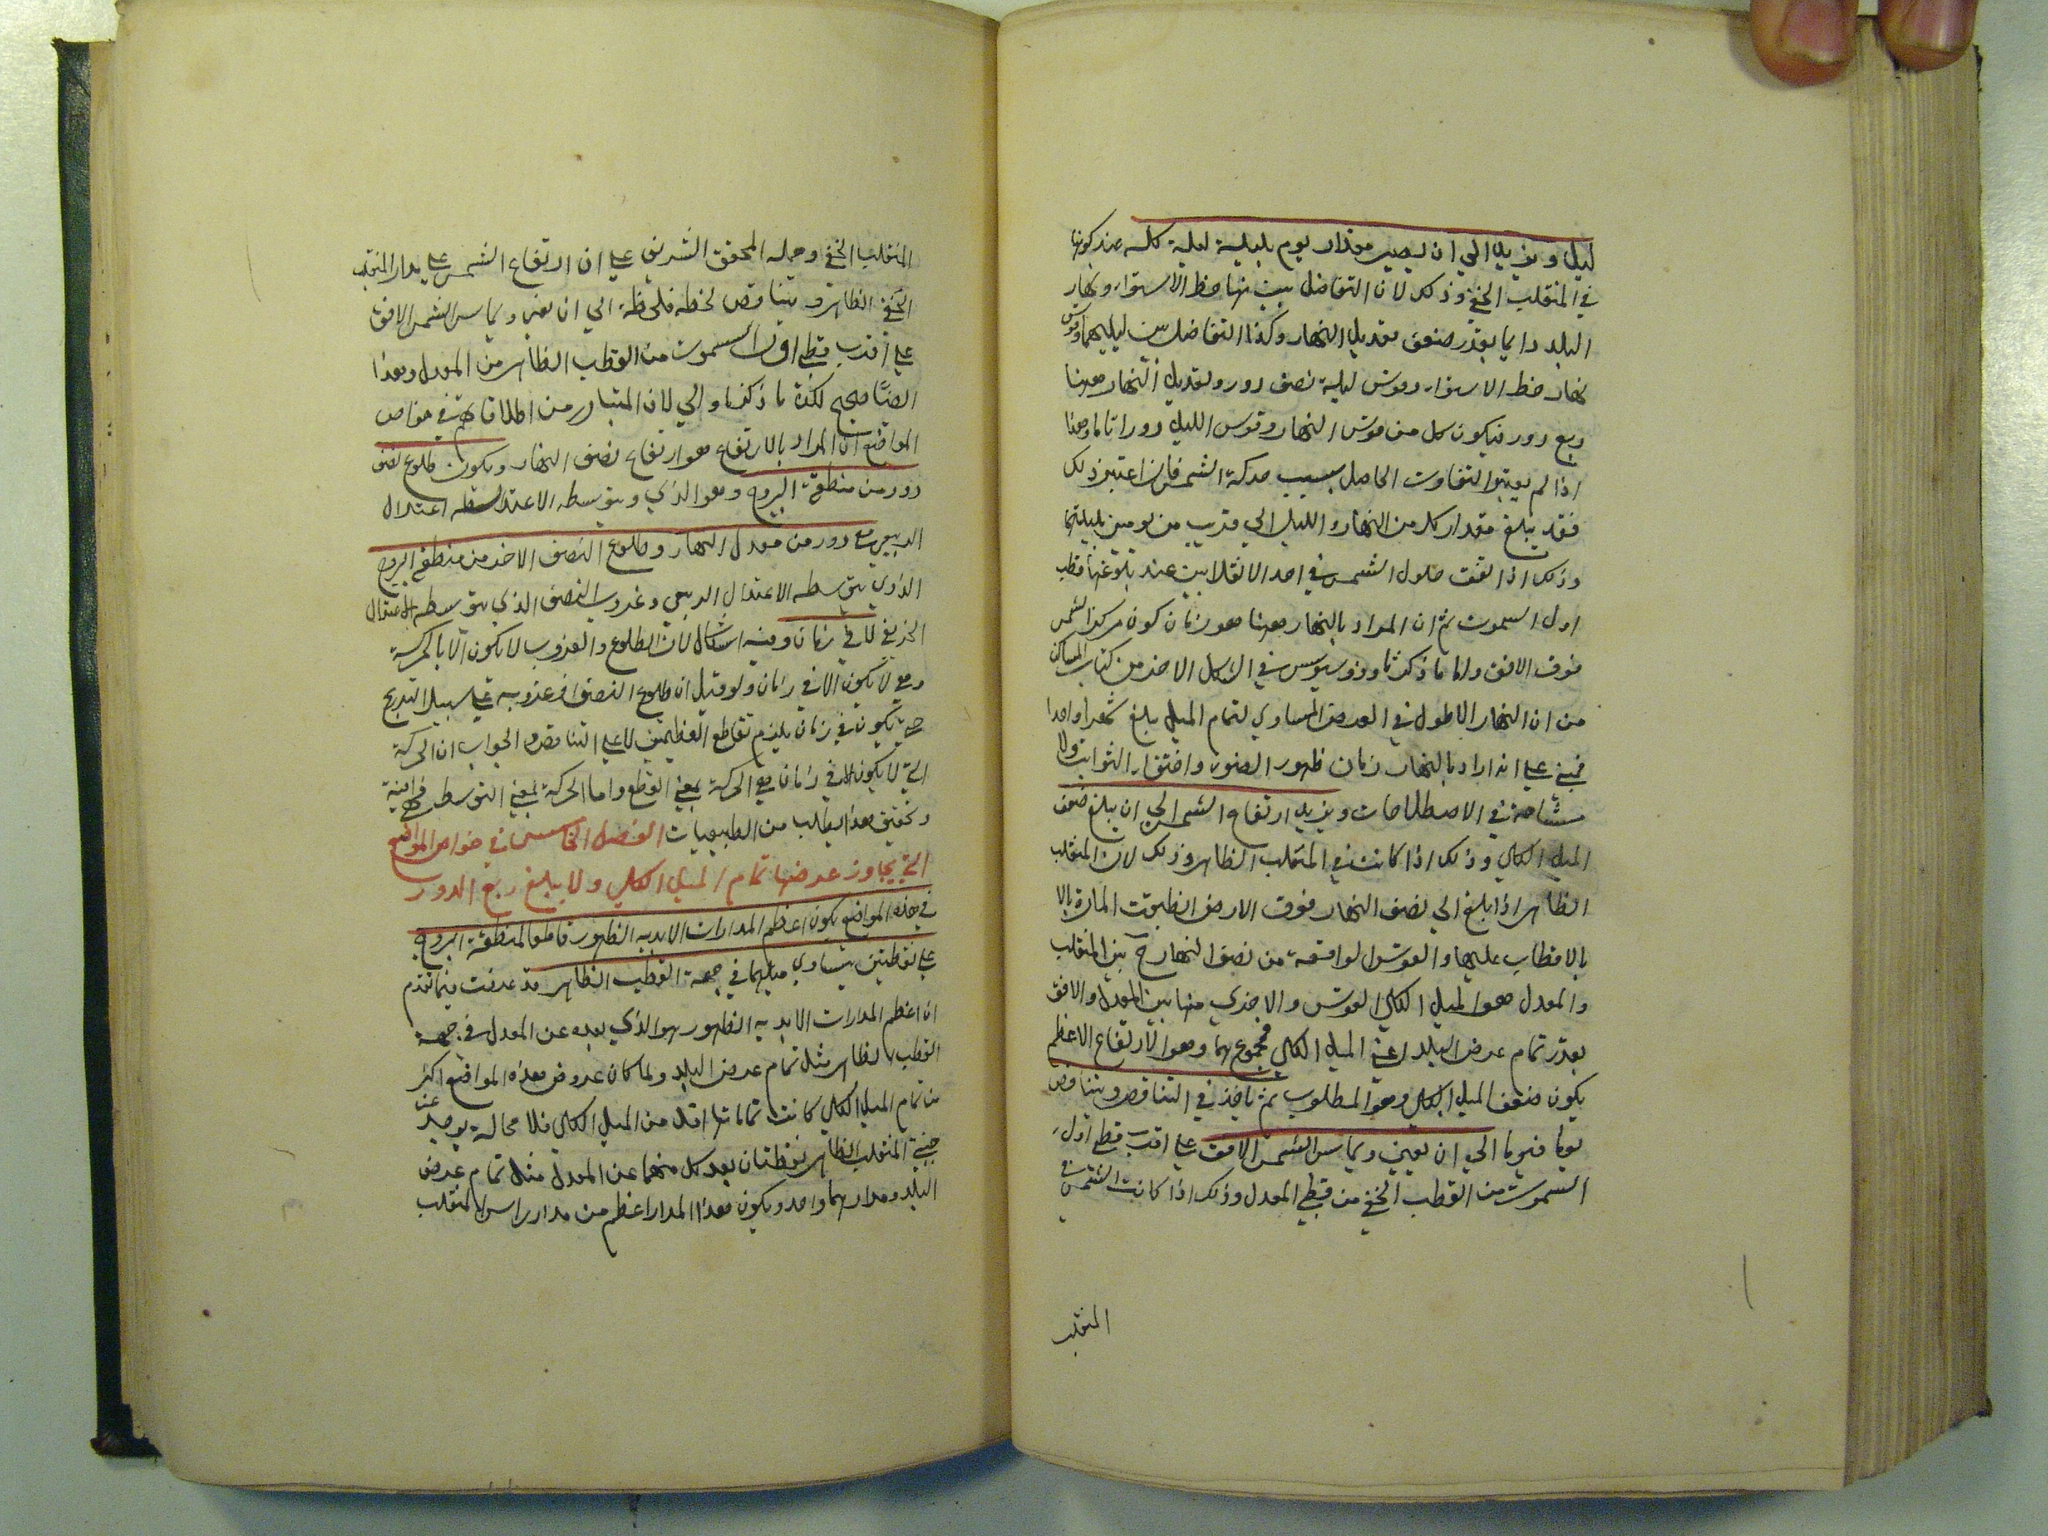 ليل ويزيد الي ان يصير مقدار يوم بليلية ليلية كله عند كونها
في المنقلب الخفي وذلك لان التفاضل بين نهار خط الاستواء ونهار
البلد دايما بقدر ضعف تعديل النهار وكذا التفاضل بين ليليهما وقوس
نهار خط الاستواء وقوس ليلية نصف دور وتعديل النهار ههنا
ربع دور فيكون كل من قوس النهار وقوس الليل دورا تاما وهذا
اذا لم يعتبر التفاوت الحاصل بسبب حركة الشمس فان اعتبر ذلك
فقد يبلغ مقدار كل من النهار والليل الي قريب من يومين بليلتهما
وذلك اذا اتفقت حلول الشمس في احد الانقلابين عند بلوغها قطب
اول السموت ثم ان المراد بالنهار ههنا هو زمان كون مركز الشمس
فوق الافق واما ما ذكره ثاوذوسيوس في الشكل الاخر من كتاب المساكن
من ان النهار الاطول في العرض المساوي لتمام الميل يبلغ شهرا واحدا
فمبني علي انه اراد بالنهار زمان ظهور الضوء واختفاء الثوابت ولا
مشاحة في الاصطلاحات ويزيد ارتفاع الشمس الي ان يبلغ ضعف
الميل الكلي وذلك اذا كانت في المنقلب الظاهر وذلك لان المنقلب
الظاهر اذا بلغ الي نصف النهار فوق الارض انطبقت المارة بالا
بالاقطاب عليها والقوس الواقعة من نصف النهار ح بين المنقلب
والمعدل هو الميل الكلي القوس والاخري منها بين المعدل والافق
بقدر تمام عرض البلد اعني الميل الكلي فمجموعهما وهو الارتفاع الاعظم
يكون ضعف الميل الكلي وهو المطلوب ثم ياخذ في التناقص ويتناقص
يوما فيوما الي ان يفني ويماس الشمس الافق علي اقرب قطبي اول
السموت من القطب الخفي من قطبي المعدل وذلك اذا كانت الشمس في
المنقلب
المنقلب الخفي وحمله المحقق الشريف علي ان ارتفاع الشمس علي مدار المنقلب
الخفي الظاهر ويتناقص لحظة فلحظة الي ان يفني ويماس الشمس الافق
علي اقرب قطبي اول السموت من القطب الظاهر من المعدل وهذا
ايضا صحيح لكنه ما ذكرنا اولي لان المتبادر من اطلاقاتهم في خواص
المواضع ان المراد بالارتفاع هو ارتفاع نصف النهار ويكون طلوع نصف
دور من منطقة البروج وهو الذي ويتوسطه الاعتدال اعتدال
الربيعي مع دور من معدل النهار وطلوع النصف الاخر من منطقة البروج
الذي يتوسطه الاعتدال الربيعي وغروب النصف الذي يتوسطه الاعتدال
الخريفي لا في زمان وفيه اشكال لان الطلوع والغروب لا يكون الا بالحركة
وهي لا يكون الا في زمان ولو قيل ان طلوع النصف وغروبه علي سبيل التدريج
حتي يكون في زمان يلزم تقاطع العظيمتين لا علي التناصف والجواب ان الحركة
التي لا يكون الا في زمان هي الحركة بمعني القطع واما الحركة بمعني التوسط فهي انية
وتحقيق هذا يطلب من الطبيعيات الفصل الخامس في خواص المواضع
التي يجاوز عرضها تمام الميل الكلي ولا يبلغ ربع الدور
في هذه المواضع يكون اعظم المدارات الابدية الظهور قاطعا لمنطقة البروج
علي نقطتين يتساوي ميلهما في جهة القطب الظاهر قد عرفت فيما تقدم
ان اعظم المدارات الابدية الظهور هو الذي بعده عن المعدل في جهة
القطب الظاهر مثل تمام عرض البلد ولما كان عروض هذه المواضع اكثر
من تمام الميل الكلي كانت تماماتها اقل من الميل الكلي فلا محالة يوجد عن
جنبتي المنقلب الظاهر نقطتان بعد كل منهما عن المعدل مثل تمام عرض
البلد ومدارهما واحد ويكون هذا المدار اعظم من مدار راس المنقلب